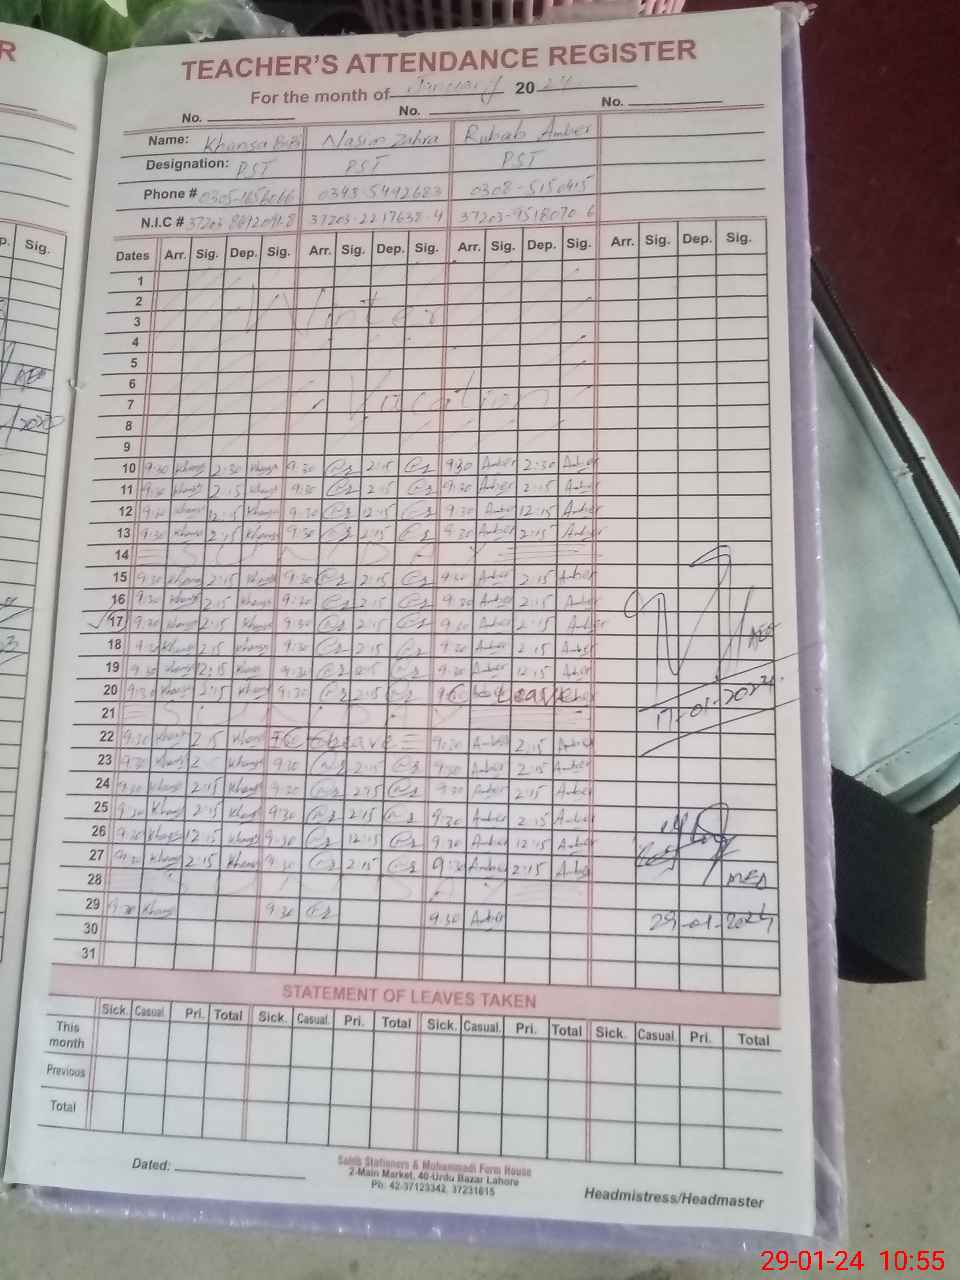 TEACHER'S ATTENDANCE REGISTER
For the month of January 2024
No. No. No.
Name: Khansa BiBi Nasim Zahra Rubab Amber
Designation: PST PST PST
Phone # 0343-5492683 0308-5150415
N.I.C # 37203-2217638-4 37203-9518070-6
Dates Arr. Sig. Dep. Sig. Arr. Sig. Dep. Sig. Arr. Sig. Dep. Sig. Arr. Sig. Dep. Sig.
1
2 Winter
3
4
5
6
7 Vacation
8
9
10 9:30 Khansa 2:30 Khansa 9:30 2:15 9:30 Amber 2:30 Amber
11 9:30 Khansa 2:15 Khansa 9:30 2:15 9:30 Amber 2:15 Amber
12 9:30 Khansa 12:15 Khansa 9:30 12:15 9:30 Amber 12:15 Amber
13 9:30 Khansa 2:15 Khansa 9:30 2:15 9:30 Amber 2:15 Amber
14 SUNDAY
15 9:30 Khansa 2:15 Khansa 9:30 2:15 9:30 Amber 2:15 Amber
16 9:30 Khansa 2:15 Khansa 9:30 2:15 9:30 Amber 2:15 Amber
17 9:30 Khansa 2:15 Khansa 9:30 2:15 9:30 Amber 2:15 Amber
18 9:30 Khansa 2:15 Khansa 9:30 2:15 9:30 Amber 2:15 Amber
AEO
19 9:30 Khansa 12:15 Khansa 9:30 9:30 Amber 12:15 Amber
20 9:30 Khansa 2:15 Khansa 9:30 2:15 Leave
17-01-2024
21 SUNDAY
22 9:30 Khansa 2:15 Khansa Leave 9:30 Amber 2:15 Amber
23 9:30 Khansa Khansa 9:30 2:15 9:30 Amber 2:15 Amber
24 9:30 Khansa 2:15 Khansa 9:30 2:15 9:30 Amber 2:15 Amber
25 9:30 Khansa 2:15 Khansa 9:30 2:15 9:30 Amber 2:15 Amber
26 9:30 Khansa 12:15 Khansa 9:30 12:15 9:30 Amber 12:15 Amber
27 9:30 Khansa 2:15 Khansa 9:30 2:15 9:30 Amber 2:15 Amber
28 SUNDAY
29 9:30 Khansa 9:30 9:30 Amber 29-01-2024
30
31
STATEMENT OF LEAVES TAKEN
Sick. Casual. Pri. Total Sick. Casual. Pri. Total Sick. Casual. Pri. Total Sick. Casual. Pri. Total
This month
Previous
Total
Dated:
Sahib Stationers & Muhammadi Form House
2-Main Market, 40-Urdu Bazar Lahore
Ph: 42-37123342, 37231615
Headmistress/Headmaster
R
p. Sig.
AEO
/2020
29-01-24 10:55